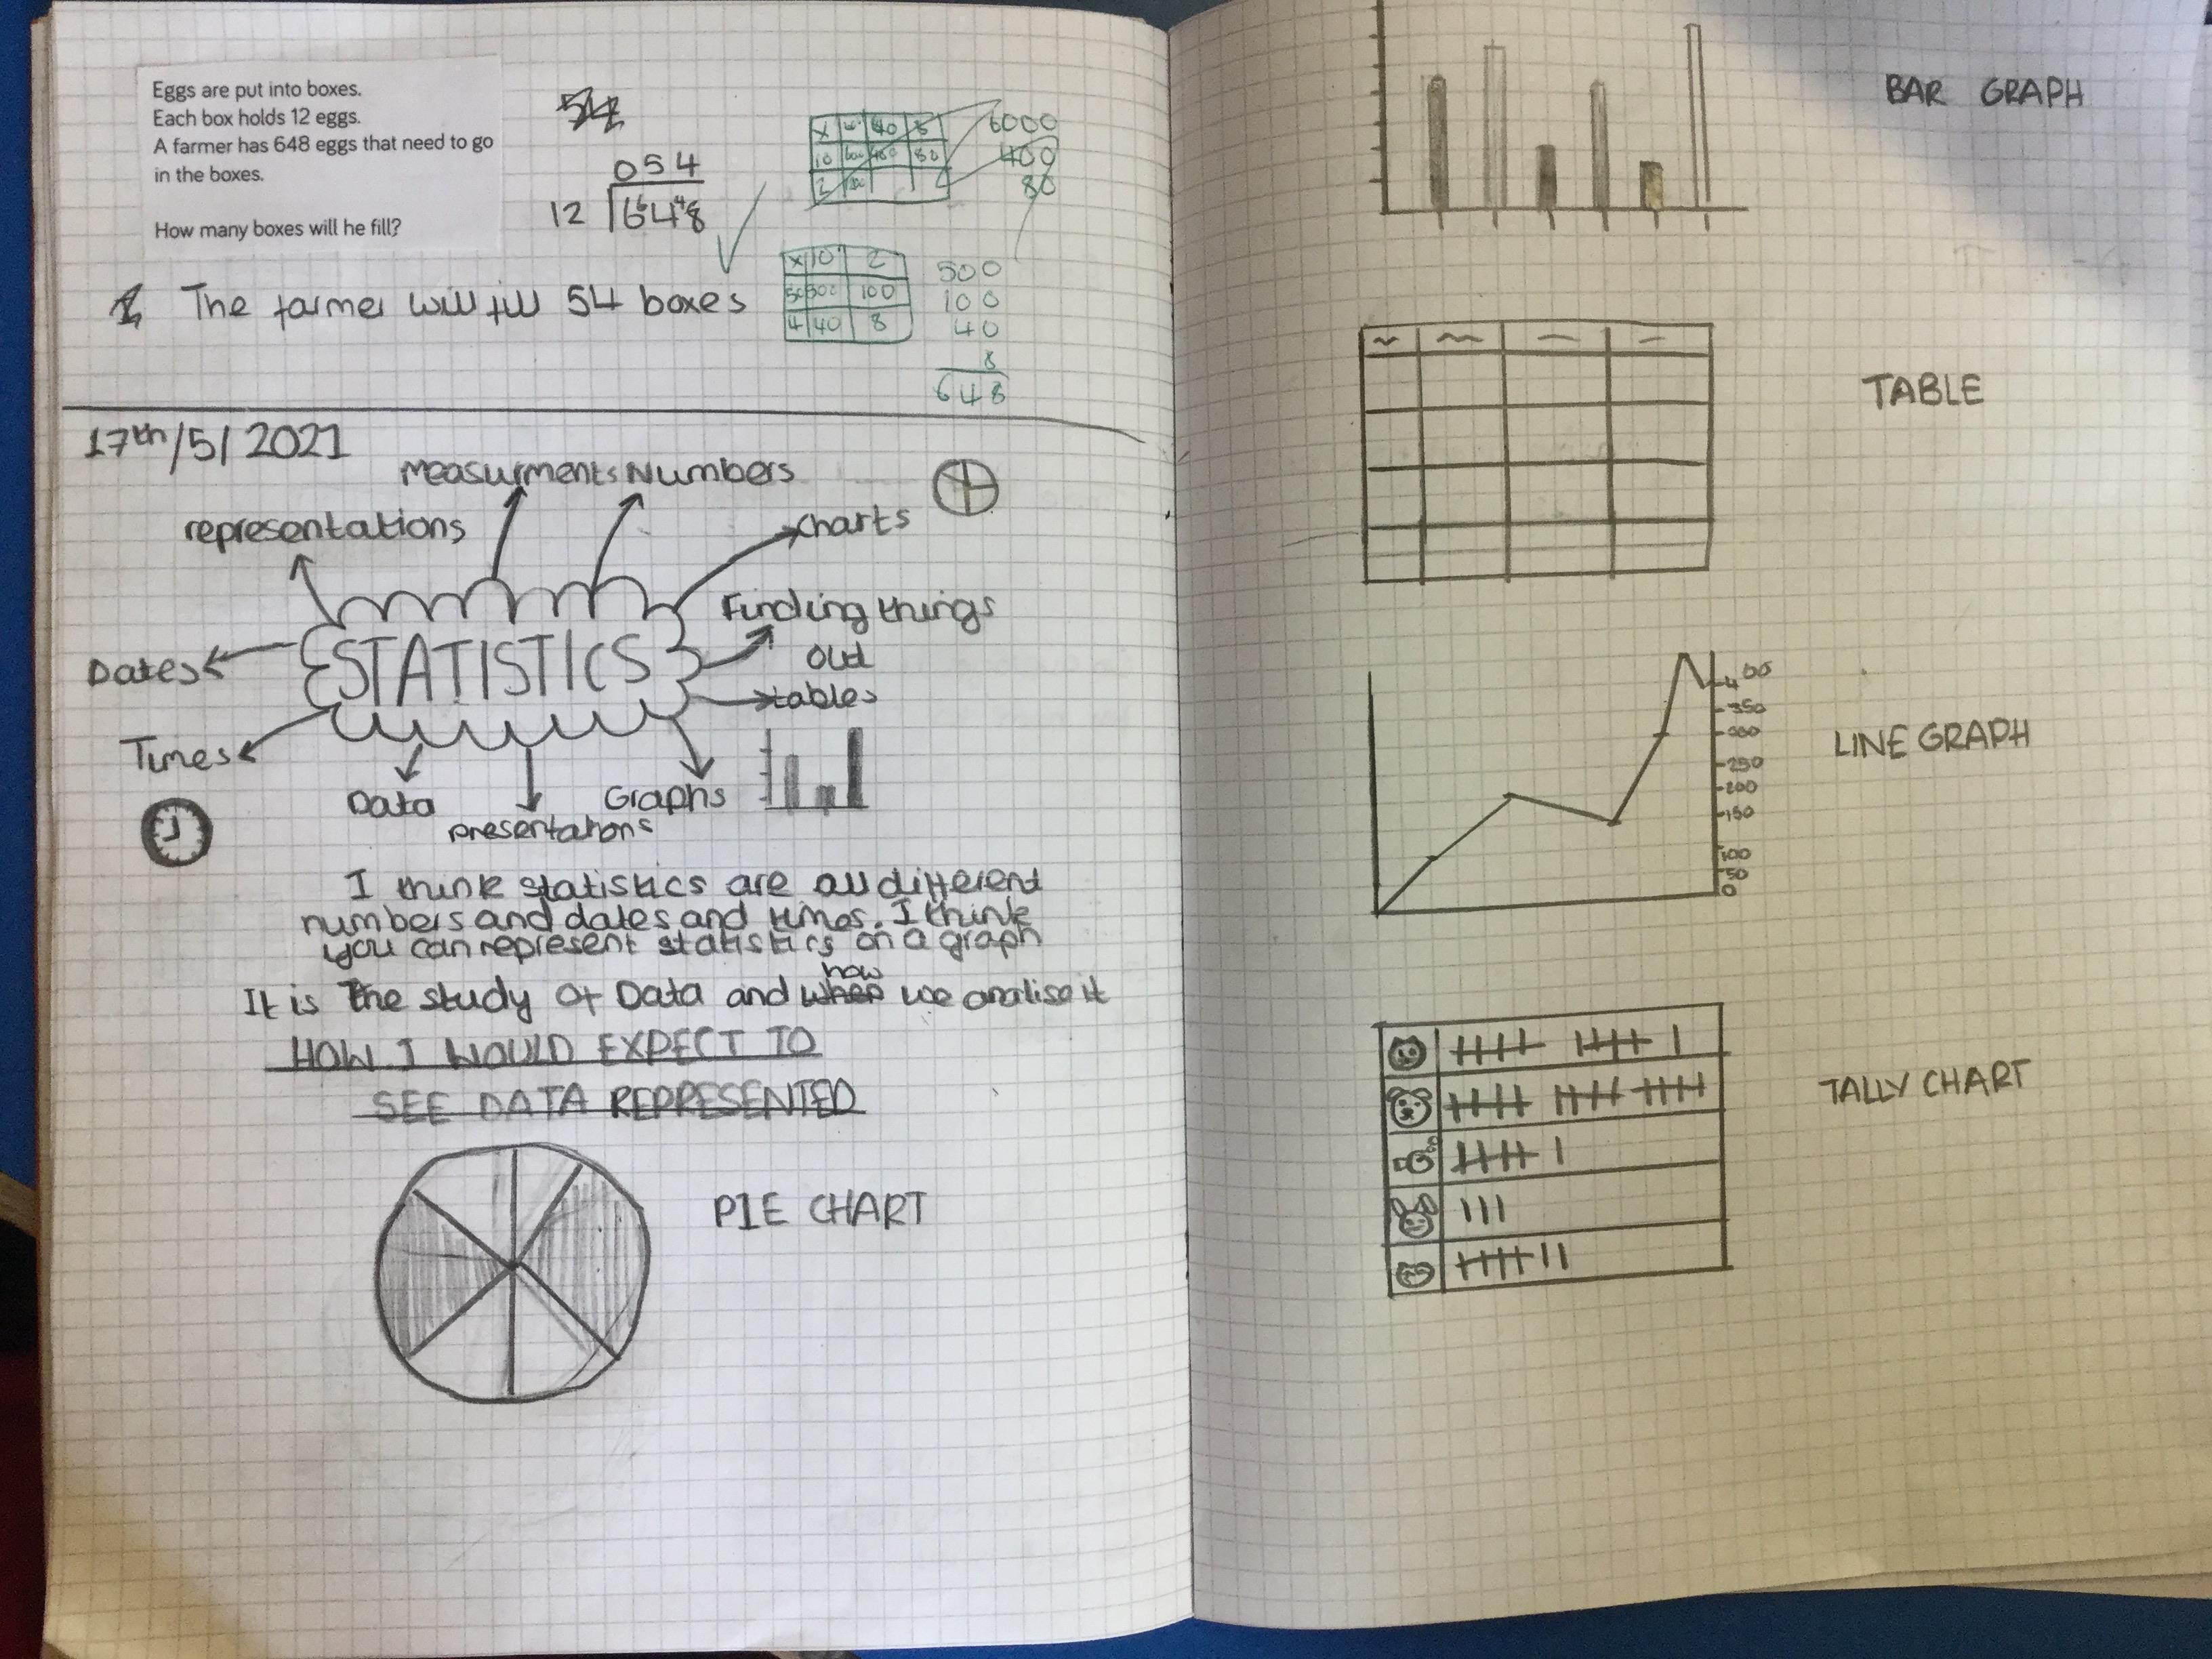 Eggs are put into boxes.
Each box holds 12 eggs.
A farmer has 648 eggs that need to go
in the boxes.
How many boxes will he fill?
054
12 6⁶4⁴8
The farmer will fill 54 boxes
x 40 8
10 80
2
6000
400
80
x 10 2
50 500 100
4 40 8
500
100
40
8
648
17th/5/2021
Measurments Numbers
representations
Charts
Finding things
out
STATISTICS
Dates
tables
Times
Data
Graphs
presentations
I think statistics are all different
numbers and dates and times. I think
you can represent statistics on a graph
how
It is the study of Data and we analise it
HOW I WOULD EXPECT TO
SEE DATA REPRESENTED
PIE CHART
BAR GRAPH
TABLE
400
350
300
250
200
150
100
50
0
LINE GRAPH
TALLY CHART